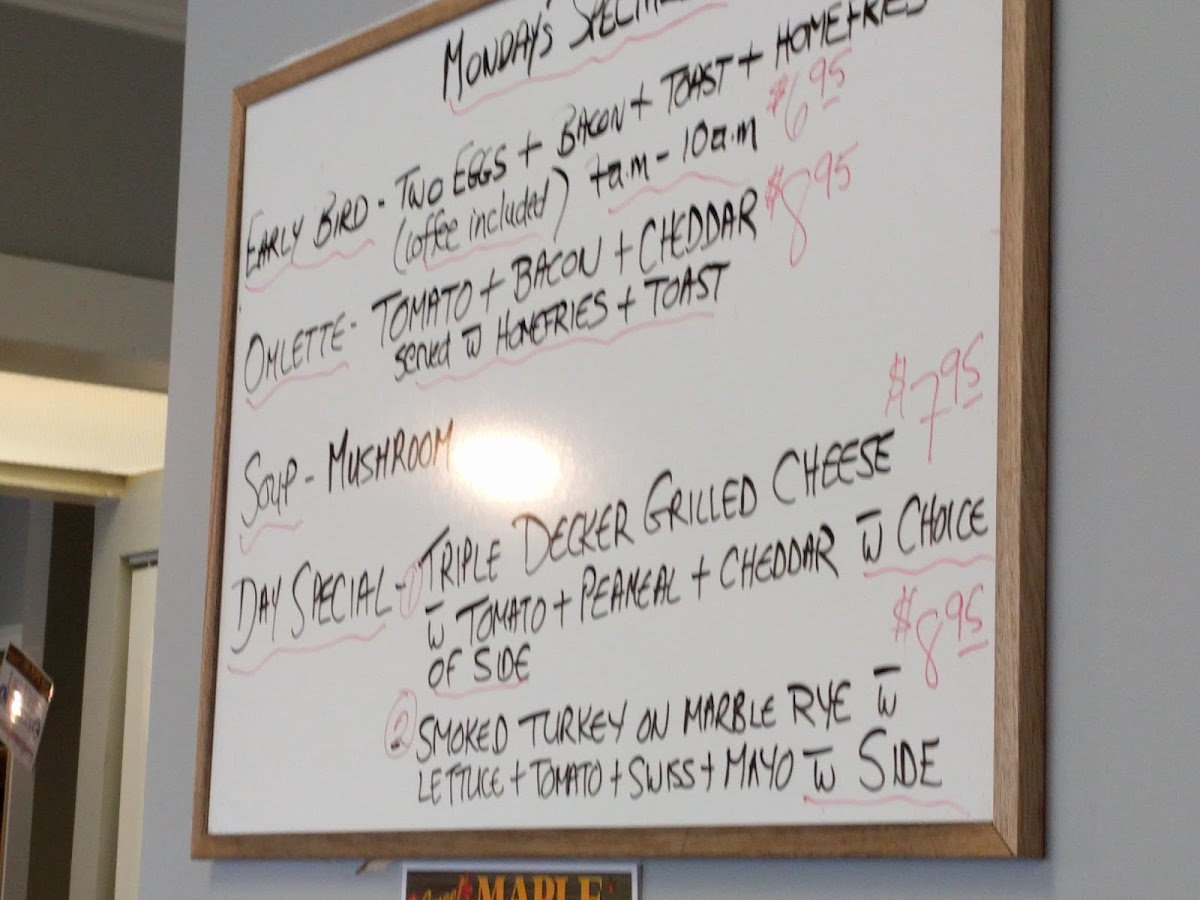 MONDAY'S SPECIALS
EARLY BIRD - TWO EGGS + BACON + TOAST + HOMEFRIES
(coffee included) 7a.m - 10a.m $6.95
OMLETTE - TOMATO + BACON + CHEDDAR $8.95
served w HOMEFRIES + TOAST
SOUP - MUSHROOM
DAY SPECIAL - 1 TRIPLE DECKER GRILLED CHEESE $7.95
w TOMATO + PEAMEAL + CHEDDAR w CHOICE
OF SIDE
2 SMOKED TURKEY ON MARBLE RYE w $8.95
LETTUCE + TOMATO + SWISS + MAYO w SIDE
MAPLE